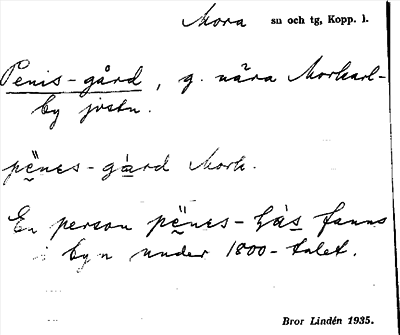 Mora sn och tg, Kopp. l.
Penis-gård, g. nära Morkarl-
by jvstn.
pë̃nes-gård Mork.
En person pë̃nes-Làs fanns
i byn under 1800-talet.
Bror Lindén 1935.